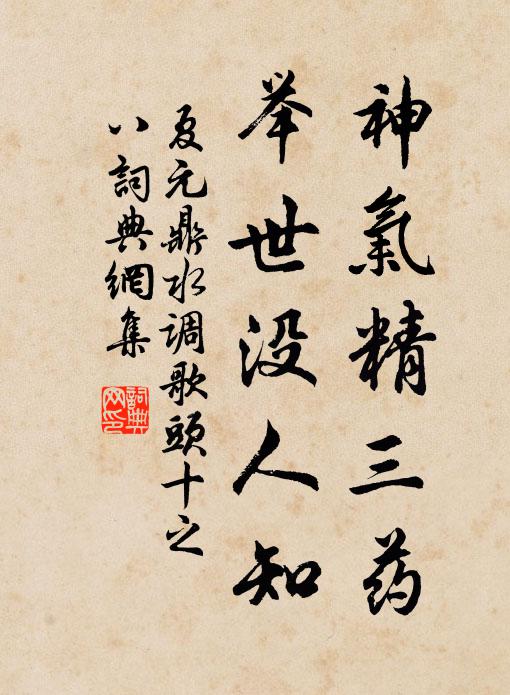 神氣精三药
举世没人知
夏元鼎水调歌頭十之
八詞典網集
詞典网印